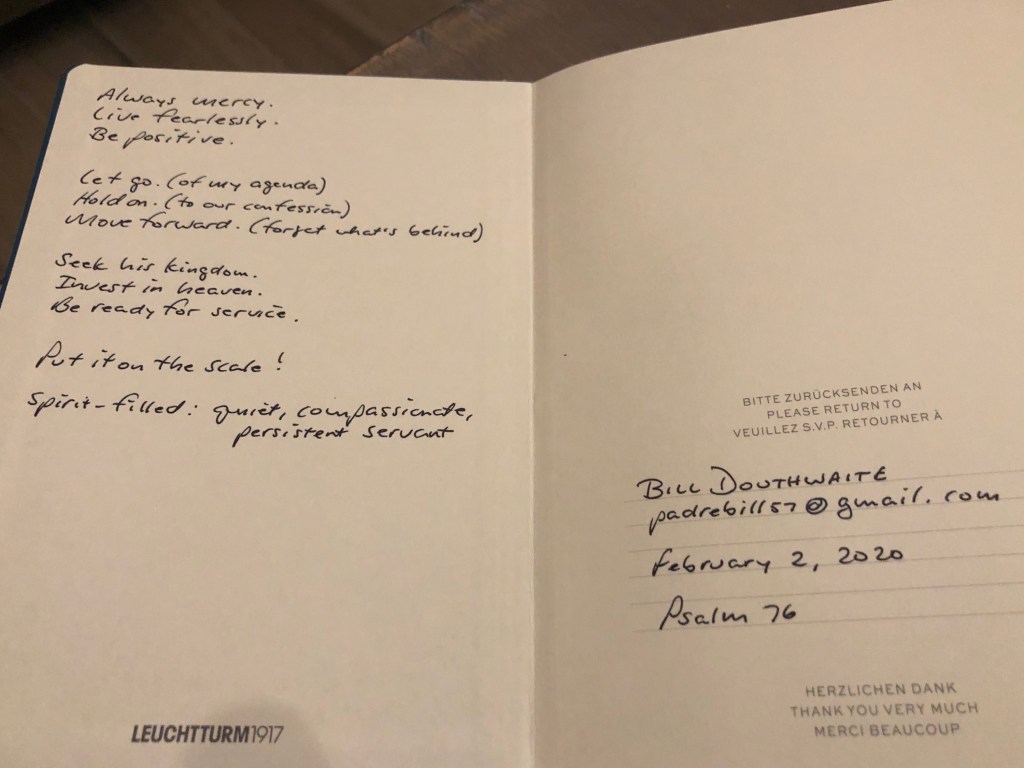 Always mercy.
Live fearlessly.
Be positive.
Let go. (of my agenda)
Hold on. (to our confession)
Move forward. (forget what's behind)
Seek his kingdom.
Invest in heaven.
Be ready for service.
Put it on the scale!
Spirit-filled: quiet, compassionate,
persistent servant
LEUCHTTURM1917
BITTE ZURÜCKSENDEN AN
PLEASE RETURN TO
VEUILLEZ S.V.P. RETOURNER À
BILL DOUTHWAITE
padrebill57@gmail.com
February 2, 2020
Psalm 76
HERZLICHEN DANK
THANK YOU VERY MUCH
MERCI BEAUCOUP